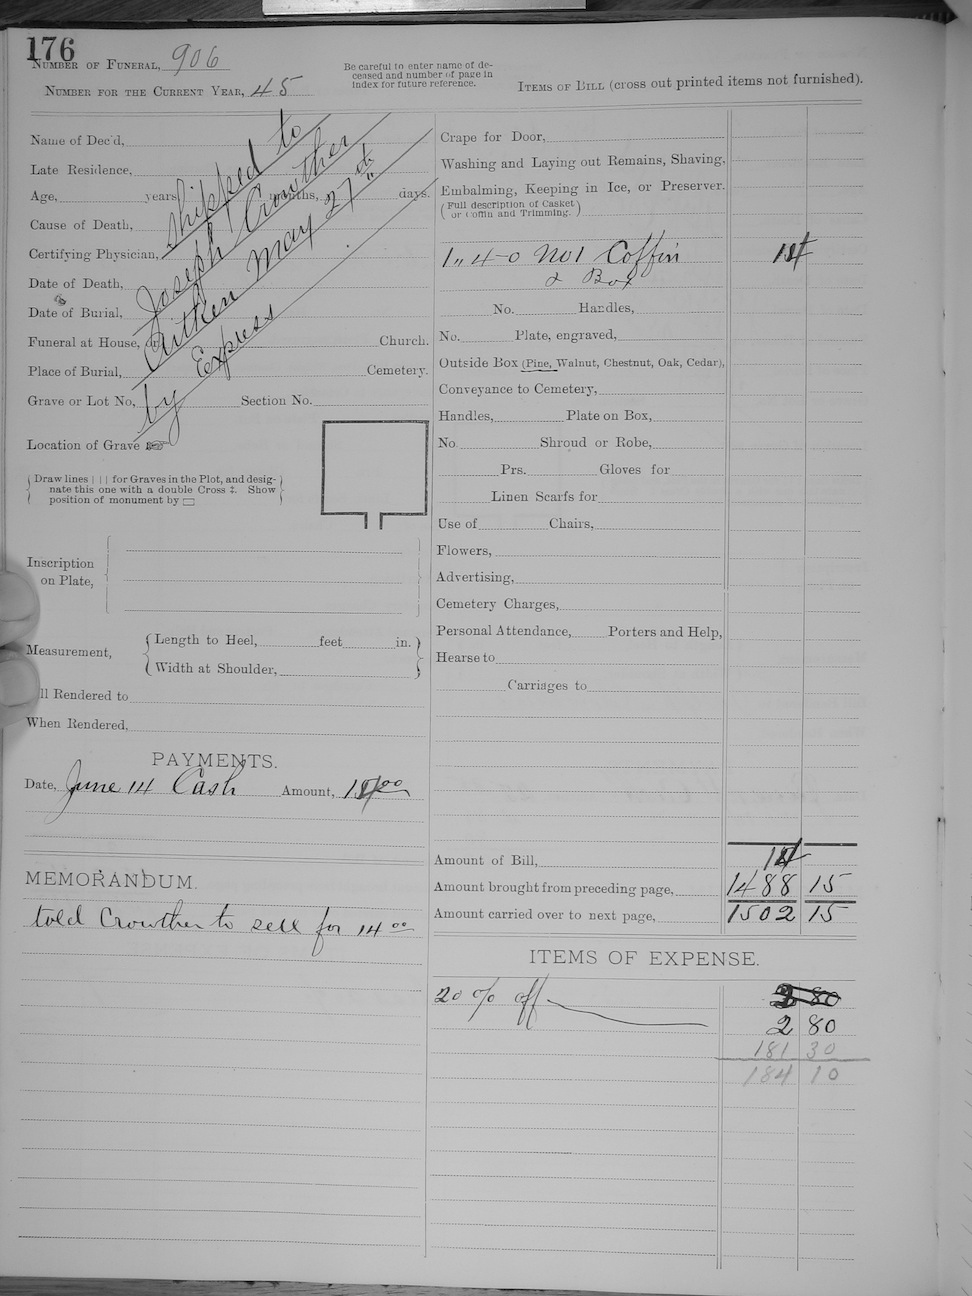 176
NUMBER OF FUNERAL, 906
NUMBER FOR THE CURRENT YEAR, 45
Be careful to enter name of de-
ceased and number of page in
index for future reference.
ITEMS OF BILL (cross out printed items not furnished).
Name of Dec'd,
Late Residence,
Age, years, months, days.
Cause of Death,
Certifying Physician,
Date of Death,
Date of Burial,
Funeral at House, or Church.
Place of Burial, Cemetery.
Grave or Lot No, Section No.
shipped to
Joseph Crowther
Aitken May 27th
by Express
Location of Grave ☞
Draw lines | | | for Graves in the Plot, and desig-
nate this one with a double Cross ‡. Show
position of monument by ▭
Inscription
on Plate,
Measurement,
Length to Heel, feet in.
Width at Shoulder,
ll Rendered to
When Rendered,
PAYMENTS.
Date, June 14 Cash Amount, 14 00
MEMORANDUM.
told Crowther to sell for 14 00
Crape for Door,
Washing and Laying out Remains, Shaving,
Embalming, Keeping in Ice, or Preserver.
(Full description of Casket
or Coffin and Trimming.)
1,, 4-0 No1 Coffin 14
& Box
No. Handles,
No. Plate, engraved,
Outside Box (Pine, Walnut, Chestnut, Oak, Cedar),
Conveyance to Cemetery,
Handles, Plate on Box,
No. Shroud or Robe,
Prs. Gloves for
Linen Scarfs for
Use of Chairs,
Flowers,
Advertising,
Cemetery Charges,
Personal Attendance, Porters and Help,
Hearse to
Carriages to
Amount of Bill, 14
Amount brought from preceding page, 1488 15
Amount carried over to next page, 1502 15
ITEMS OF EXPENSE.
20 % off 3 80
2 80
181 30
184 10